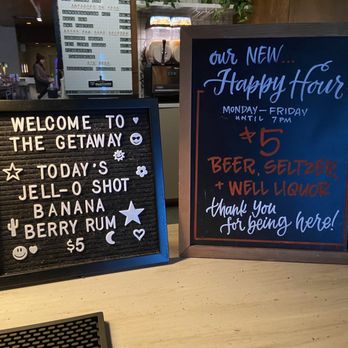 WELCOME TO
THE GETAWAY
TODAY'S
JELL-O SHOT
BANANA
BERRY RUM
$5
our NEW...
Happy Hour
MONDAY-FRIDAY
UNTIL 7PM
$5
BEER, SELTZER,
+ WELL LIQUOR
thank you
for being here!